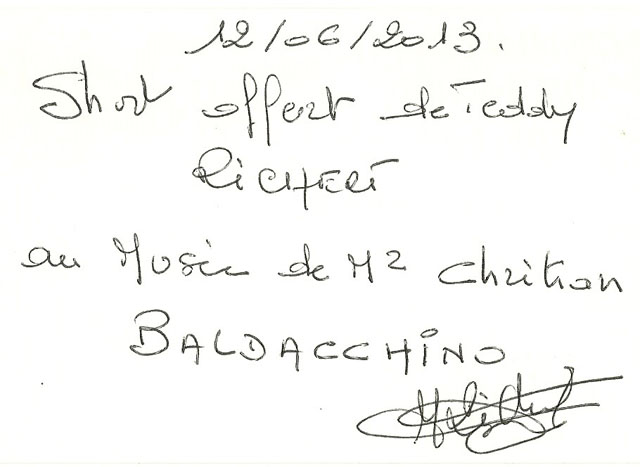 12/06/2013.
Short offert de Teddy
RiCHERT
au Musée de Mr Christian
BALDACCHiNO